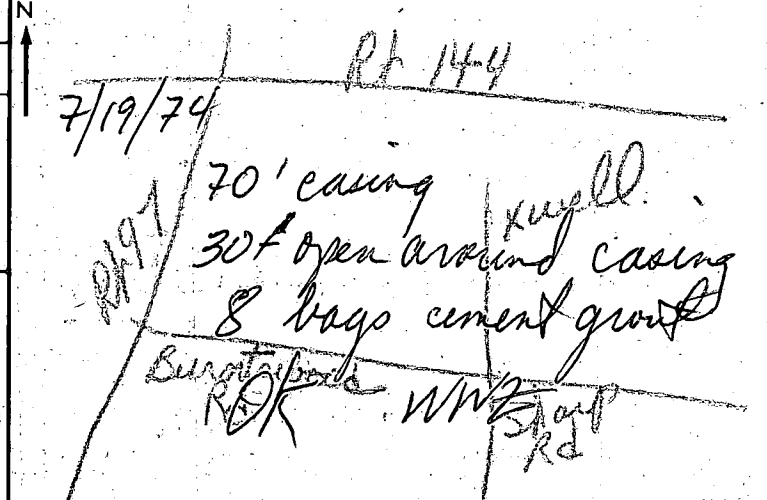 N
Rt 144
7/19/74
70' casing
x well
Rt 97
30f open around casing
8 bags cement grout
Burntwoods
Rd
OK WWZ
Sharp
Rd